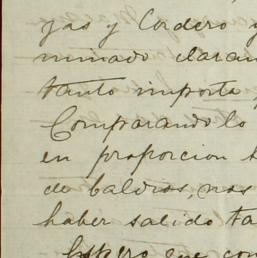 yas y Cordero y
minado claram
tanto importa
Comparando lo
en proporcion
de baldios, nos
haber salido ta
Espero que con